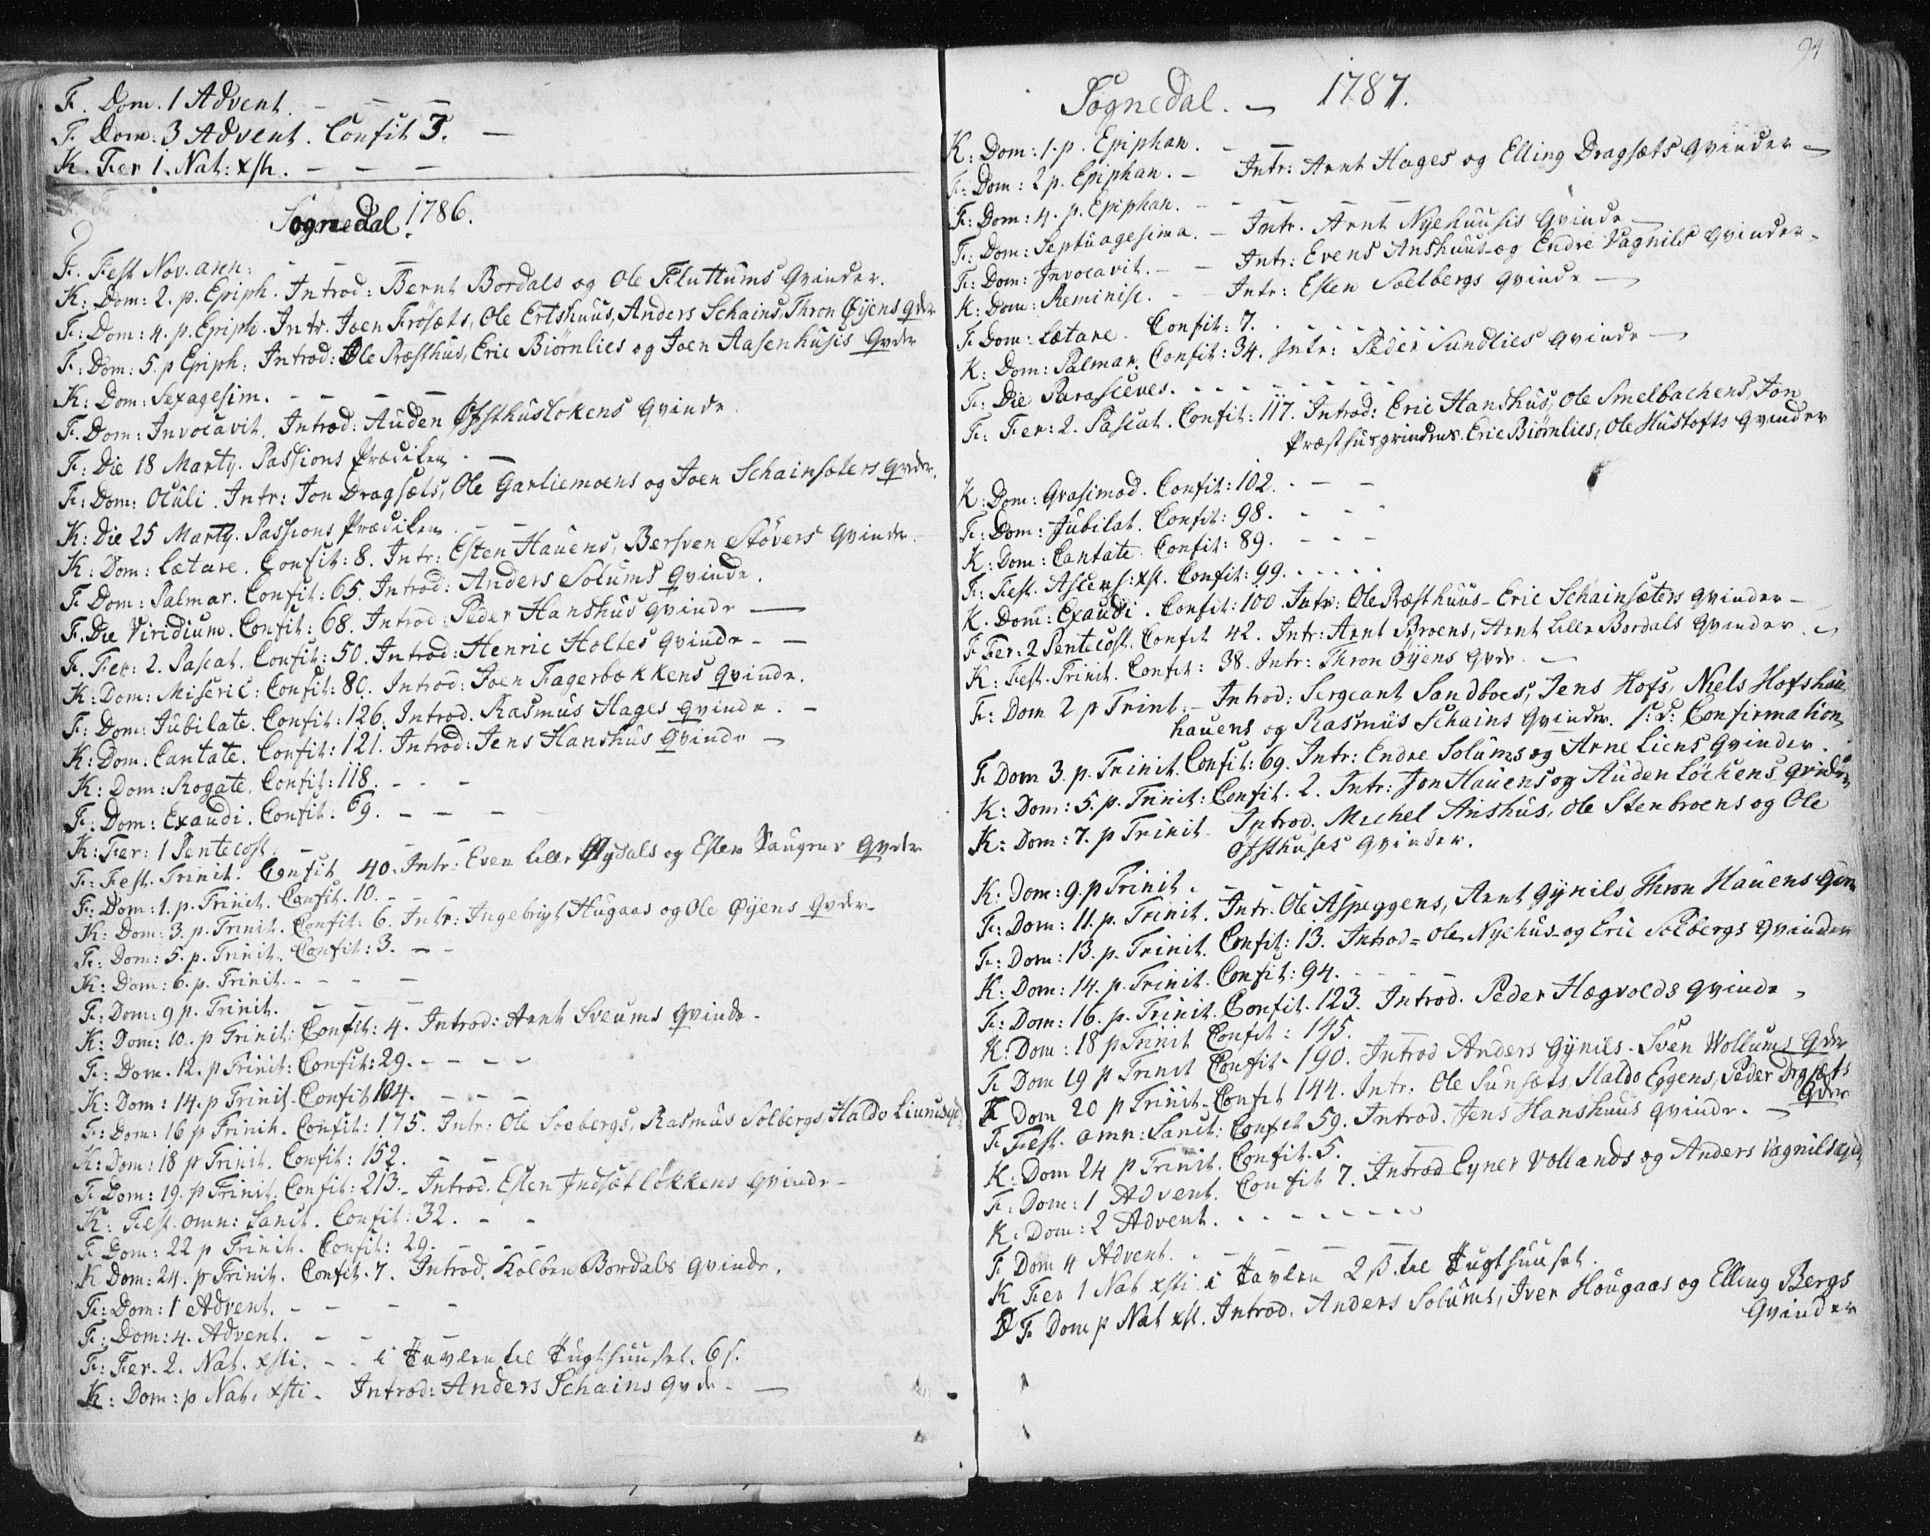 F. Dom. 1 Advent. - - -
F. Dom: 3 Advent. Confit 3. -
K. Fer 1. Nat: xsti. - - -
Sognedal 1786.
F. Fest Nov. ann: - - -
K: Dom: 2. p. Epiph. Introd: Bernt Bordals og Ole Fluttums Qvinder.
F: Dom: 4. p. Epiph. Intr. Joen Frösæts, Ole Ertshuus, Anders Schains, Thron Øyens Qvdr
F: Dom: 5. p Epiph: Introd: Ole Præsthus, Eric Biørnlies og Joen Aasenhusis Qvdr
K: Dom: Sexagesim. - - - -
F. Dom: Invocavit. Introd: Auden Ofsthuslökens Qvinde.
F: Die 18 Marty. Passions Prædiken. -
F: Dom: Oculi. Intr: Jon Dragsæts, Ole Garliemoens og Joen Schainsæters Qvdr.
K: Die 25 Marty. Passions Prædiken. - -
K: Dom: Lætare. Confit: 8. Intr: Esten Hauens, Bersven Stövers Qvinde.
F Dom: Palmar. Confit: 65. Introd: Anders Solums Qvinde.
F. Die Viridium. Confit: 68. Introd: Peder Hanshus Qvinde -
F. Fer: 2. Pascat. Confit: 50. Introd: Henric Holtes Qvinde - -
K: Dom: Miseric: Confit: 80. Introd: Joen Fagerbækkens Qvinde.
F: Dom: Jubilate. Confit: 126. Introd. Rasmus Hages Qvinde. -
K: Dom: Cantate. Confit: 121. Introd: Jens Hanshus Qvinde -
K: Dom: Rogate. Confit: 118. - - -
F: Dom: Exaudi. Confit: 69. - - -
K: Fer: 1 Pentecost. - - -
F: Fest. Trinit. Confit 40. Intr: Even Lille Øydals og Esten Haugens Qvdr
F: Dom: 1. p. Trinit. Confit. 10. - - -
K: Dom: 3. p. Trinit. Confit: 6. Intr: Ingebrigt Hugaas og Ole Øyens Qvdr -
F: Dom: 5. p. Trinit. Confit: 3. - -
K: Dom: 6. p. Trinit. - - - -
F: Dom: 9 p. Trinit. - - -
K: Dom: 10. p Trinit: Confit: 4. Introd: Arnt Sveums Qvinde -
F: Dom. 12. p Trinit: Confit: 29. - - - -
K: Dom: 14. p Trinit. Confit 104. - - -
F: Dom: 16 p Trinit. Confit: 175. Intr: Ole Soebergs, Rasmus Solbergs, Haldo Liums
K: Dom: 18 p Trinit. Confit: 152. - -
F Dom: 19. p Trinit. Confit: 213. - Introd. Esten Indsætløkkens Qvinde -
K: Fest. omn: Sanct. Confit: 32. - -
F Dom: 22 p Trinit. Confit: 29. - - -
K Dom: 24. p Trinit. Confit. 7. Introd. Kolben Bordals Qvinde.
F: Dom: 1 Advent. - - - -
F: Dom: 4. Advent. - - -
F: Fer. 2. Nat. xsti. - - i Tavlen til Tugthuuset. 6 s.
K: Dom: p Nat. xsti - Introd: Anders Schains Qvde - -
94
Sognedal. - 1787.
K: Dom: 1. p. Epiphan. - -
F: Dom: 2 p. Epiphan. - Intr: Arnt Hages og Elling Dragsæts Qvinder -
F: Dom: 4. p. Epiphan. - - - - -
F: Dom: Septuagesima. - Intr. Arnt Nyehuusis Qvinde -
F: Dom: Invocavit. - - Intr: Evens Anshuus og Endre Vagnils Qvinder.
K: Dom: Reminisc. - - Intr: Esten Solbergs Qvinde -
F Dom: Lætare. Confit: 7. - - - - - -
K: Dom: Palmar. Confit: 34. Intr: Peder Sundlies Qvinde -
F: Die Parasceves. - - - - - - - -
F: Fer: 2. Pascat. Confit: 117. Introd: Eric Hanshus, Ole Smelbachens, Jon
Præsthusgrindens. Eric Biørnlies, Ole Hustofts Qvinder
K: Dom: Qvasimod. Confit: 102. - - -
F: Dom: Jubilat. Confit: 98. - - -
K: Dom: Cantate. Confit: 89. - - -
F: Fest. Ascens: xst. Confit: 99. - - - - -
K. Dom: Exaudi. Confit: 100. Intr: Ole Præsthuus - Eric Schainsæters Qvinder -
F Fer: 2 Pentecost. Confit 42. Intr: Arnt Broens, Arnt Lille Bordals Qvinder. -
K: Fest. Trinit. Confit: 38. Intr: Thron Öyens Qvde. -
F: Dom 2 p Trint: - Introd: Sergeant Sandboes, Jens Hofs, Niels Hofshau
hauens og Rasmus Schains Qvinder. s: d: Confirmation
F Dom 3. p. Trinit. Confit: 69. Intr: Endre Solums og Arne Liens Qvinder.
K: Dom: 5. p. Trinit: Confit: 2. Intr: Jon Hauens og Auden Löckens Qvinder
K: Dom: 7. p Trinit - Introd. Michel Anshus, Ole Stenbroens og Ole
Ofsthuses Qvinder.
K: Dom: 9. p Trinit. - - - -
F: Dom: 11. p. Trinit. Intr. Ole Aspeggens, Arnt Gynils, Thron Hauens Qvr
F: Dom: 13. p. Trinit. Confit: 13. Introd = Ole Nyehus - og Eric Solbergs Qvinder
K: Dom: 14. p. Trinit. Confit: 94. - - - -
F: Dom: 16. p. Trinit. Confit. 123. Introd. Peder Hægvolds Qvinde -
K: Dom: 18 p Trinit Confit: 145.
F Dom 19 p Trinit Confit - 190. Introd Anders Gynils - Sven Wollums Qvdr
K Dom 20 p Trinit - Confit 144. Intr. Ole Sunsæts, Haldo Eggens, Peder Dragsæts
Qvdr
F Fest. Omn: Sanct: Confit 59. Introd. Jens Hanshuus Qvinde. -
K: Dom 24 p Trinit. Confit. 5.
F: Dom: 1 Advent. Confit 7. Introd Eyner Vollands og Anders Vagnils
K: Dom: 2 Advent. - - - - - - -
F Dom 4 Advent. - - - - -
K Fer 1 Nat xsti. i Tavlen 2 ß. til Tugthuuset.
F Dom p Nat xst. Introd. Anders Solums, Iver Hougaas og Elling Bergs
Qvinder